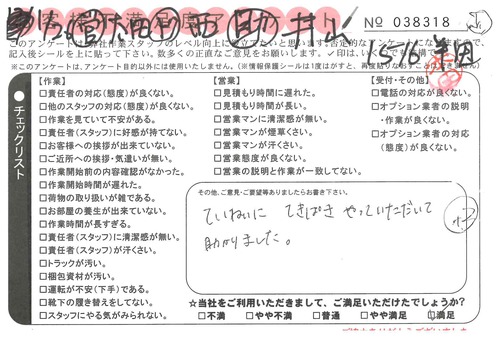 No 038318
このアンケートは、弊社作業スタッフのレベル向上に役立たいと思います。否定的なアンケートになりますので、
記入後シールを上に貼って下さい。数多くの正直なご意見をお願いします。✓印は、いくつでも
※このアンケートは、アンケート目的以外には使用いたしません。(※情報保護シールは1度はがすと、再度貼りなおすことの
15-16
チェックリスト
【作業】
□責任者の対応(態度)が良くない。
□他のスタッフの対応(態度)が良くない。
□作業を見ていて不安がある。
□責任者(スタッフ)に好感が持てない。
□お客様への挨拶が出来ていない。
□ご近所への挨拶・気遣いが無い。
□作業開始前の内容確認がなかった。
□作業開始時間が遅れた。
□荷物の取り扱いが雑である。
□お部屋の養生が出来ていない。
□作業時間が長すぎる。
□責任者(スタッフ)に清潔感が無い。
□責任者(スタッフ)が汗くさい。
□トラックが汚い。
□梱包資材が汚い。
□運転が不安(下手)である。
□靴下の履き替えをしてない。
□スタッフにやる気がみられない。
【営業】
□見積もり時間に遅れた。
□見積もり時間が長い。
□営業マンに清潔感が無い。
□営業マンが煙草くさい。
□営業マンが汗くさい。
□営業態度が良くない。
□営業の説明と作業が一致してない。
【受付・その他】
□電話の対応が良くない。
□オプション業者の説明
・作業が良くない。
□オプション業者の対応
(態度)が良くない。
その他、ご意見・ご要望等ありましたらお書き下さい。
ていねいに てきぱき やっていただいて
助かりました。
☆当社をご利用いただきまして、ご満足いただけたでしょうか?
□不満 □やや不満 □普通 □やや満足 ☑満足